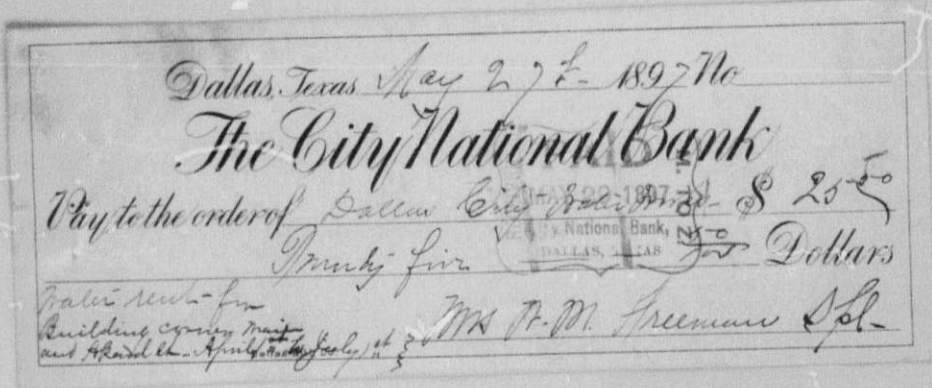 Dallas, Texas May 27th 1897 No
The City National Bank
Pay to the order of Dallas City Water $ 25 50
Twenty five 50/100 Dollars
MAY 29 1897
National Bank,
DALLAS, TEXAS
Water rent for
Building corner Main
and April July 1st
Mrs M. Freeman Spl-